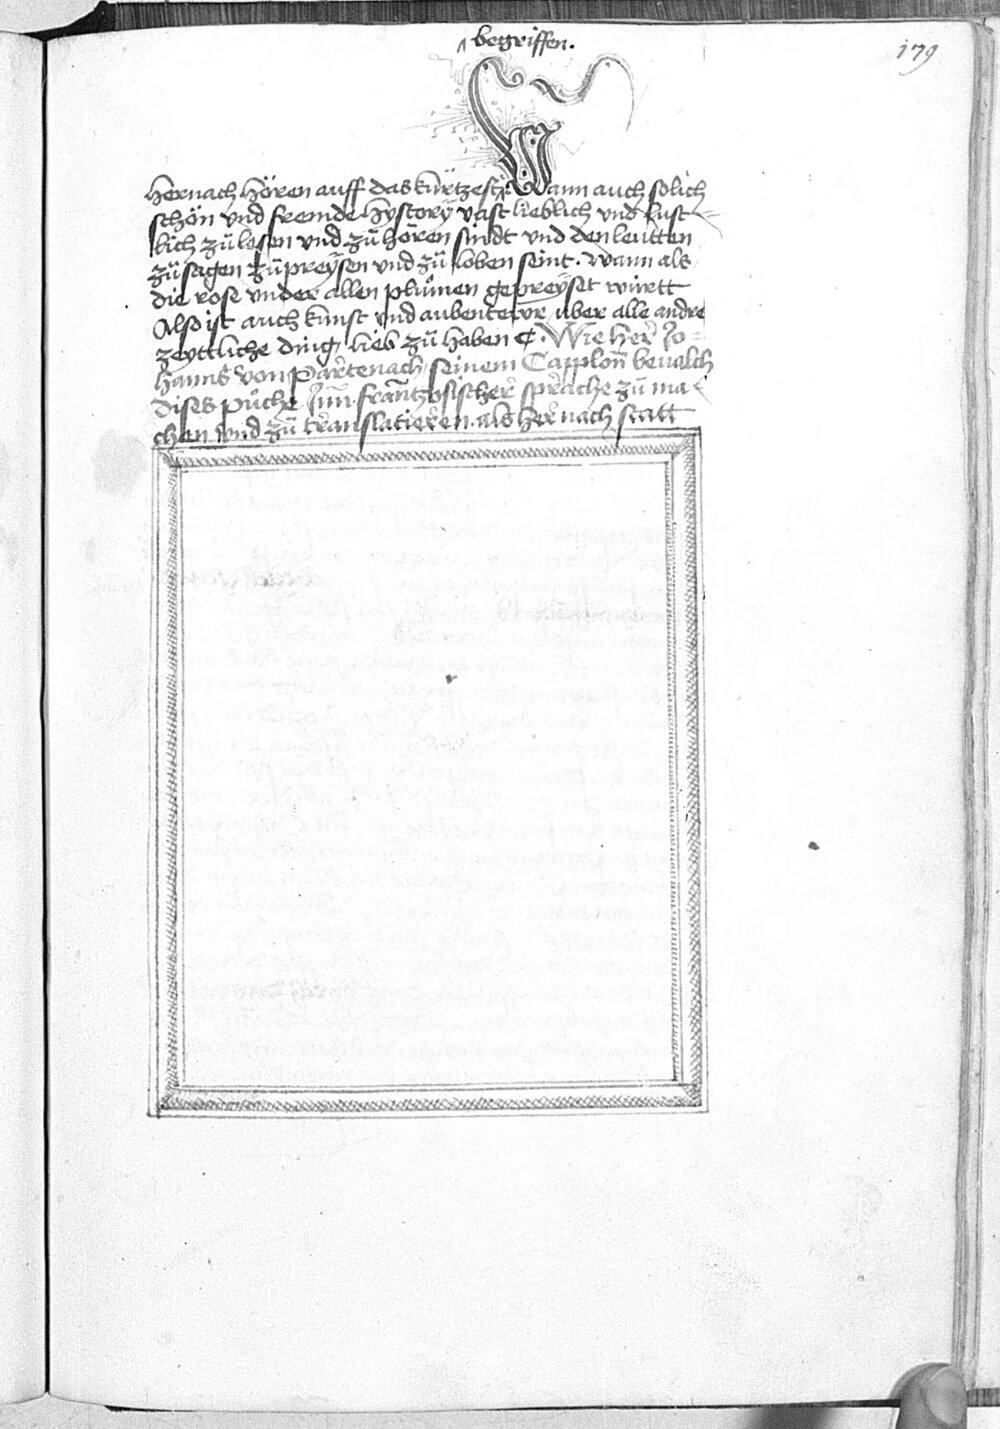 begriffen.
179
hernach hören auff das kürtzest Wann auch solich
schön vnd fremde hystorÿ vast lieblich vnd lust
lich zü lesen vnd zü hören sindt vnd den leutten
zü sagen zü preÿsen vnd zü loben seint. wann als
die rose vnder allen plůmen gepreÿset württ
Also ist auch kunst vnd aubentewr uber alle andre
zeyttliche ding lieb zü haben Wie her Jo=
hanns von Partenach seinem Capplon̄ beualch
dises půche Jnn frantzosischer sprache zü ma
chen vnd zü translatieren. als her nach statt